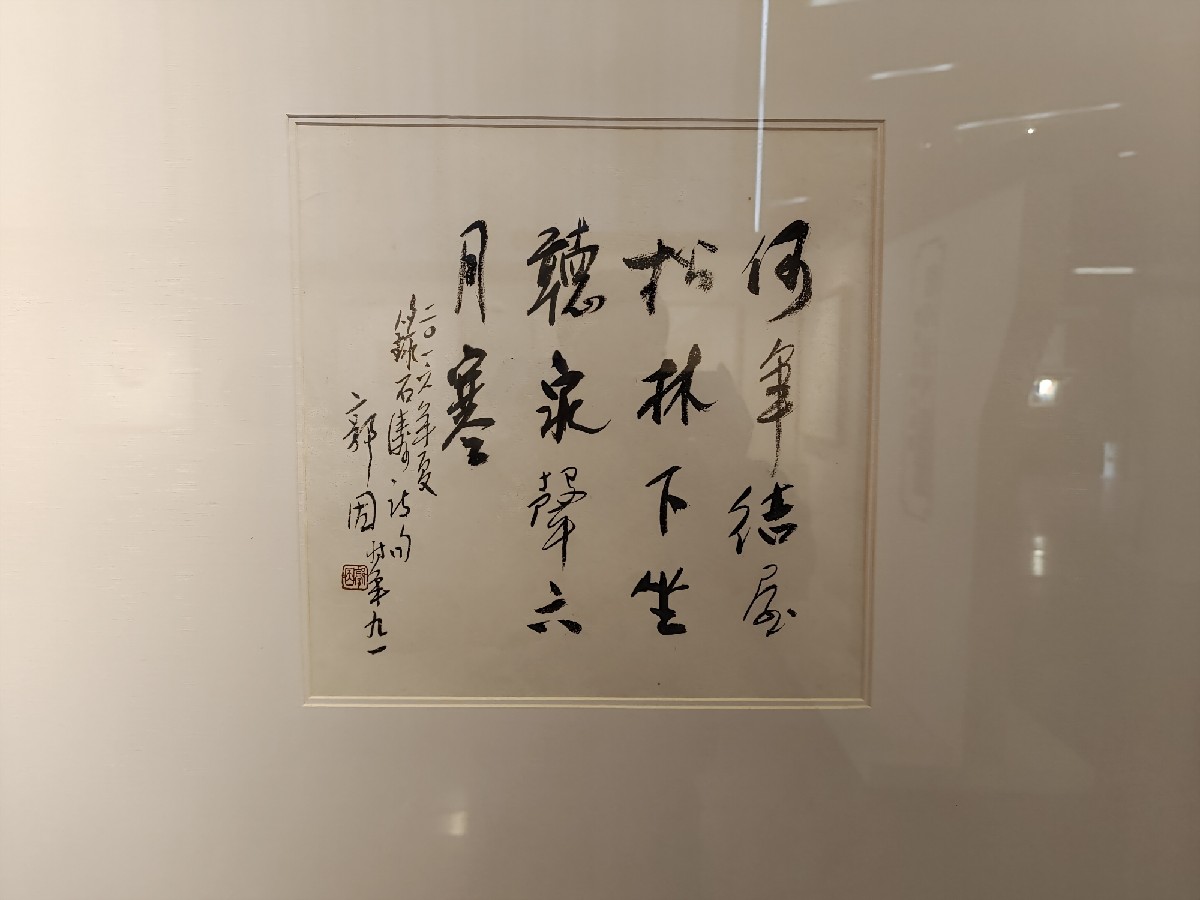 何年结屋
松林下坐
聽泉聲六
月寒
二〇一六年夏
録石濤诗句
郭因时年九一